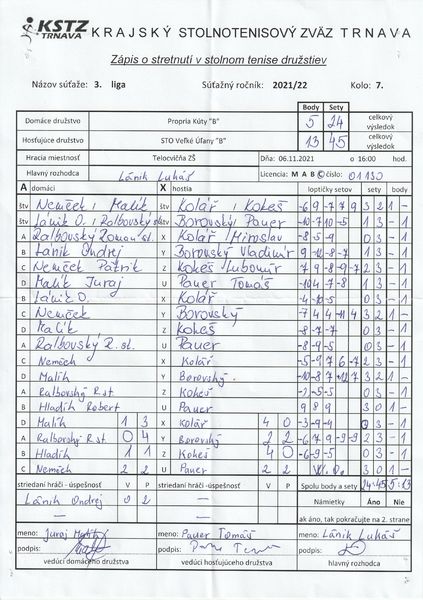 KSTZ TRNAVA KRAJSKÝ STOLNOTENISOVÝ ZVÄZ TRNAVA
Zápis o stretnutí v stolnom tenise družstiev
Názov súťaže: 3. liga Súťažný ročník: 2021/22 Kolo: 7.
Body Sety
Domáce družstvo Propria Kúty "B" 5 24 celkový výsledok
Hosťujúce družstvo STO Veľké Úľany "B" 13 45 celkový výsledok
Hracia miestnosť Telocvičňa ZŠ Dňa: 06.11.2021 o 16:00 hod.
Hlavný rozhodca Lánik Lukáš Licencia: M A B C číslo: 01130
A domáci X hostia loptičky setov sety body
štv Nemček i Malík štv Kolář i Kokeš -6 9 -7 7 9 3 2 1 -
štv Lánik O. i Ralbovský st. štv Borovský Pauer -10 -7 10 -5 1 3 - 1
A Ralbovský Roman st. X Kolář Miroslav -8 -5 -9 0 3 - 1
B Lánik Ondrej Y Borovský Vladimír 1 3 - 1
C Nemček Patrik Z Kokeš Ľubomír 7 9 -8 -9 -7 2 3 - 1
D Malík Juraj U Pauer Tomáš -10 4 -7 -8 1 3 - 1
B Lánik O. X Kolář -4 -10 -5 0 3 - 1
C Nemček Y Borovský 3 2 1 -
D Malík Z Kokeš -8 -7 -7 0 3 - 1
A Ralbovský R. st. U Pauer -8 -9 -5 0 3 - 1
C Nemček X Kolář -5 -9 7 6 -7 2 3 - 1
D Malík Y Borovský 3 2 1 -
A Ralbovský R. st Z Kokeš 0 3 - 1
B Hladík Robert U Pauer 9 8 9 3 0 1 -
D Malík 1 3 X Kolář 4 0 -3 -9 -4 0 3 - 1
A Ralbovský R. st 0 4 Y Borovský 2 2 -6 7 9 -9 -9 2 3 - 1
B Hladík 1 1 Z Kokeš 4 0 -6 -9 -5 0 3 - 1
C Nemček 2 2 U Pauer 2 2 W.O. 3 0 1 -
striedaní hráči - úspešnosť V P striedaní hráči - úspešnosť V P Spolu body a sety 24:45 5:13
Lánik Ondrej 0 2 — Námietky Áno Nie
— — ak áno, tak pokračujte na 2. strane
meno: Juraj Malík meno: Pauer Tomáš meno: Lánik Lukáš
podpis: podpis: podpis:
vedúci domáceho družstva vedúci hosťujúceho družstva hlavný rozhodca